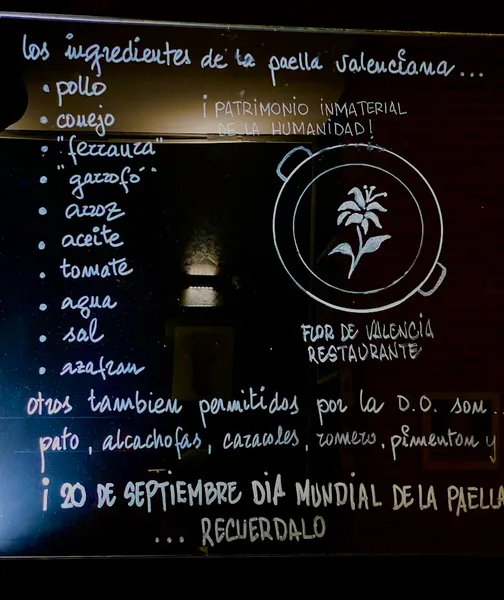 los ingredientes de la paella valenciana...
• pollo
¡ PATRIMONIO INMATERIAL
DE LA HUMANIDAD!
• conejo
• "ferraura"
• "garrofó"
• arroz
• aceite
• tomate
• agua
• sal
• azafran
FLOR DE VALENCIA
RESTAURANTE
otros tambien permitidos por la D.O. son
pato, alcachofas, caracoles, romero, pimenton y
¡ 20 DE SEPTIEMBRE DIA MUNDIAL DE LA PAELLA
... RECUERDALO